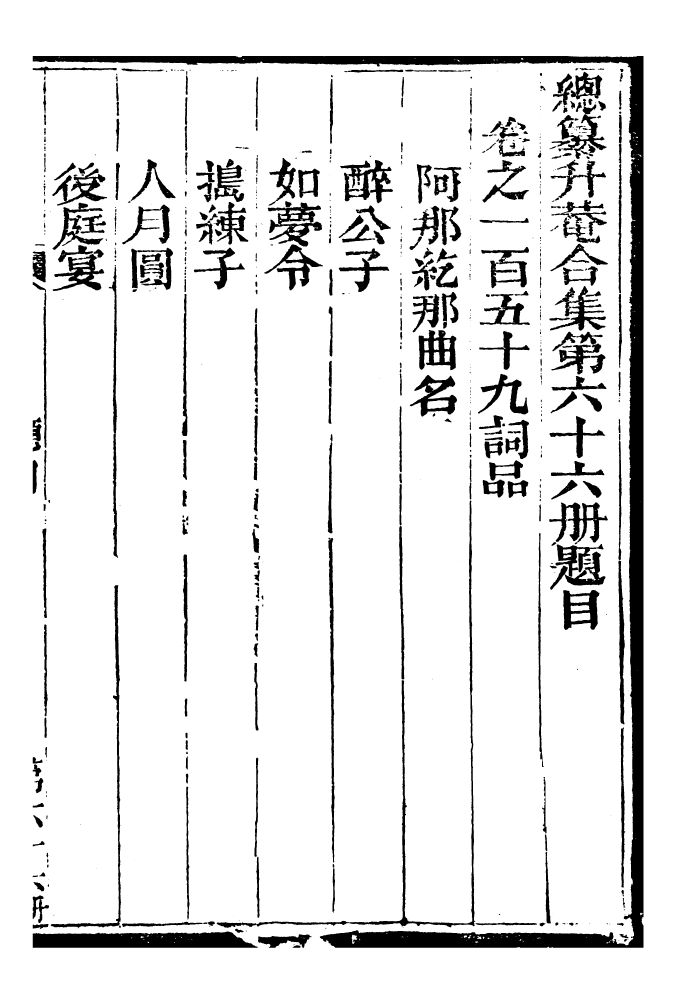 總纂升菴合集第六十六册題目
卷之一百五十九詞品
阿那紇那曲名
醉公子
如夢令
搗練子
人月圓
後庭宴
第六十六册